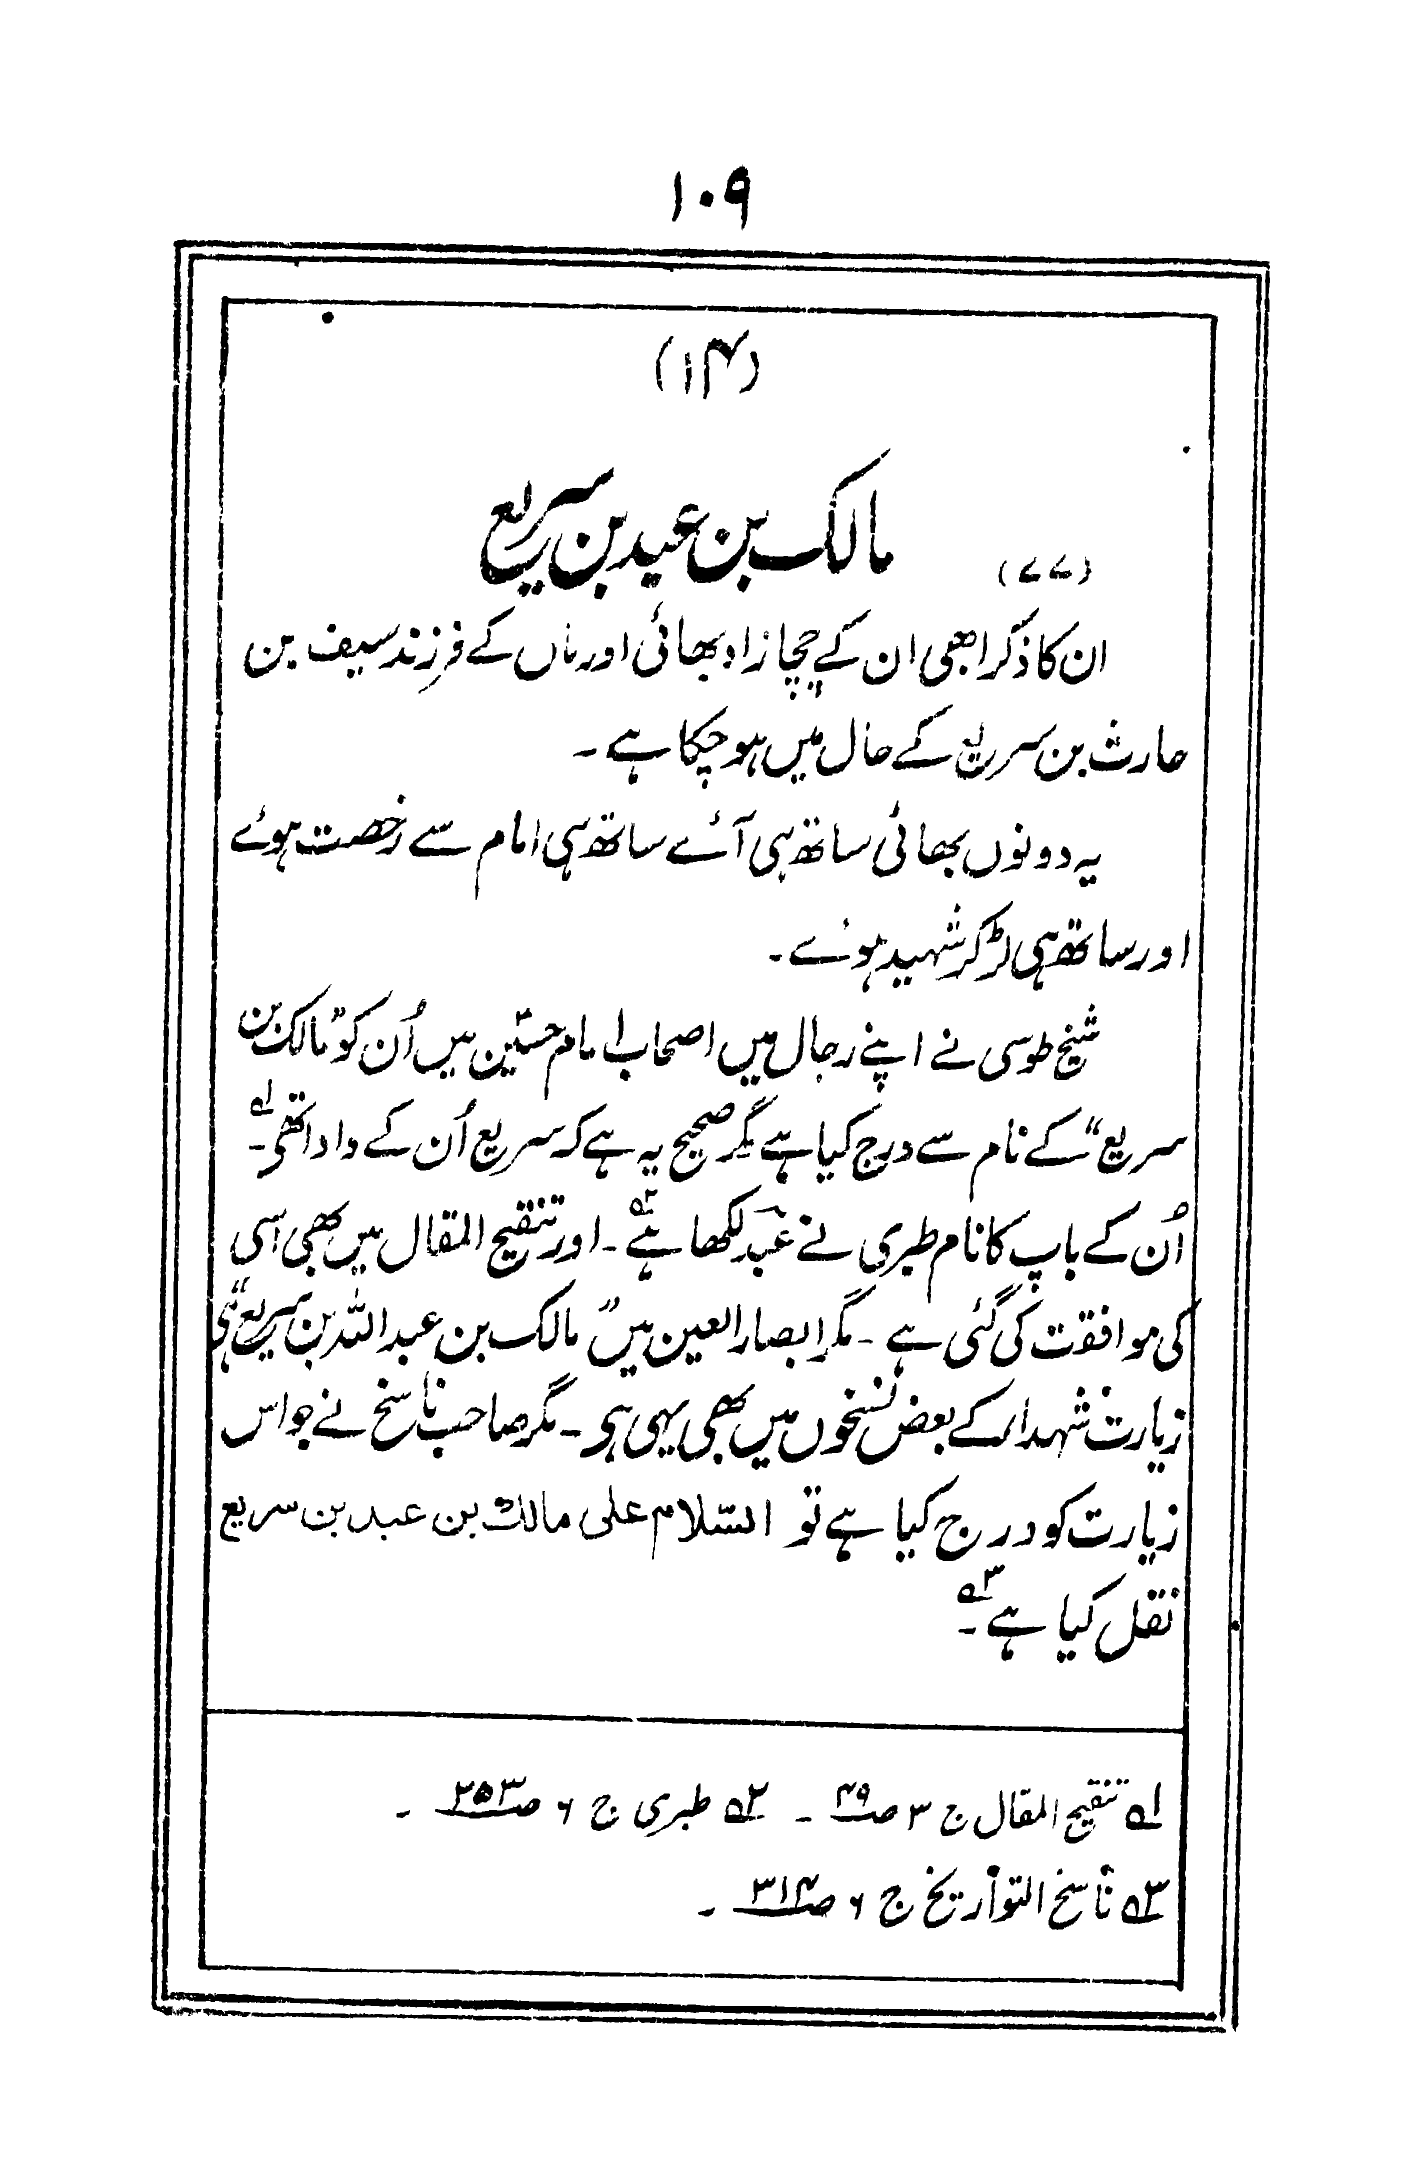 ۱۰۹
(۱۴)
(۷۷) مالک بن عبد بن سریع
ان کا ذکر ابھی ان کے چچا زاد بھائی اور ماں کے فرزند سیف بن
حارث بن سریع کے حال میں ہو چکا ہے ۔
یہ دونوں بھائی ساتھ ہی آئے ساتھ ہی امام سے رخصت ہوئے
اور ساتھ ہی لڑ کر شہید ہوئے ۔
شیخ طوسی نے اپنے رجال میں اصحاب امام حسینؑ میں اُن کو "مالک بن
سریع" کے نام سے درج کیا ہے مگر صحیح یہ ہے کہ سریع اُن کے دادا تھے ۔ ۱ے
اُن کے باپ کا نام طبری نے عبد لکھا ہے ۲ے ۔ اور تنقیح المقال میں بھی اسی
کی موافقت کی گئی ہے ۔ مگر ابصار العین میں "مالک بن عبد اللہ بن سریع" ہی
زیارت شہداء کے بعض نسخوں میں بھی یہی ہے ۔ مگر صاحب ناسخ نے جو اس
زیارت کو درج کیا ہے تو السّلام علی مالک بن عبد بن سریع
نقل کیا ہے ۳ے ۔
۱ے تنقیح المقال ج ۳ ص ۴۹ ۔ ۲ے طبری ج ۶ ص ۲۵۳ ۔
۳ے ناسخ التواریخ ج ۶ ص ۳۱۴ ۔